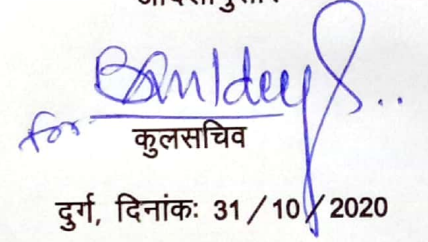 for
कुलसचिव
दुर्ग, दिनांकः 31 / 10 / 2020